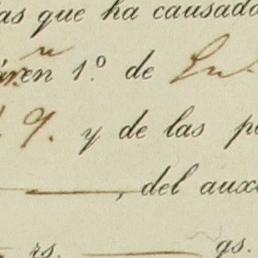 as que ha causado
en 1.º de En.
9. y de las p
, del aux
rs. gs.